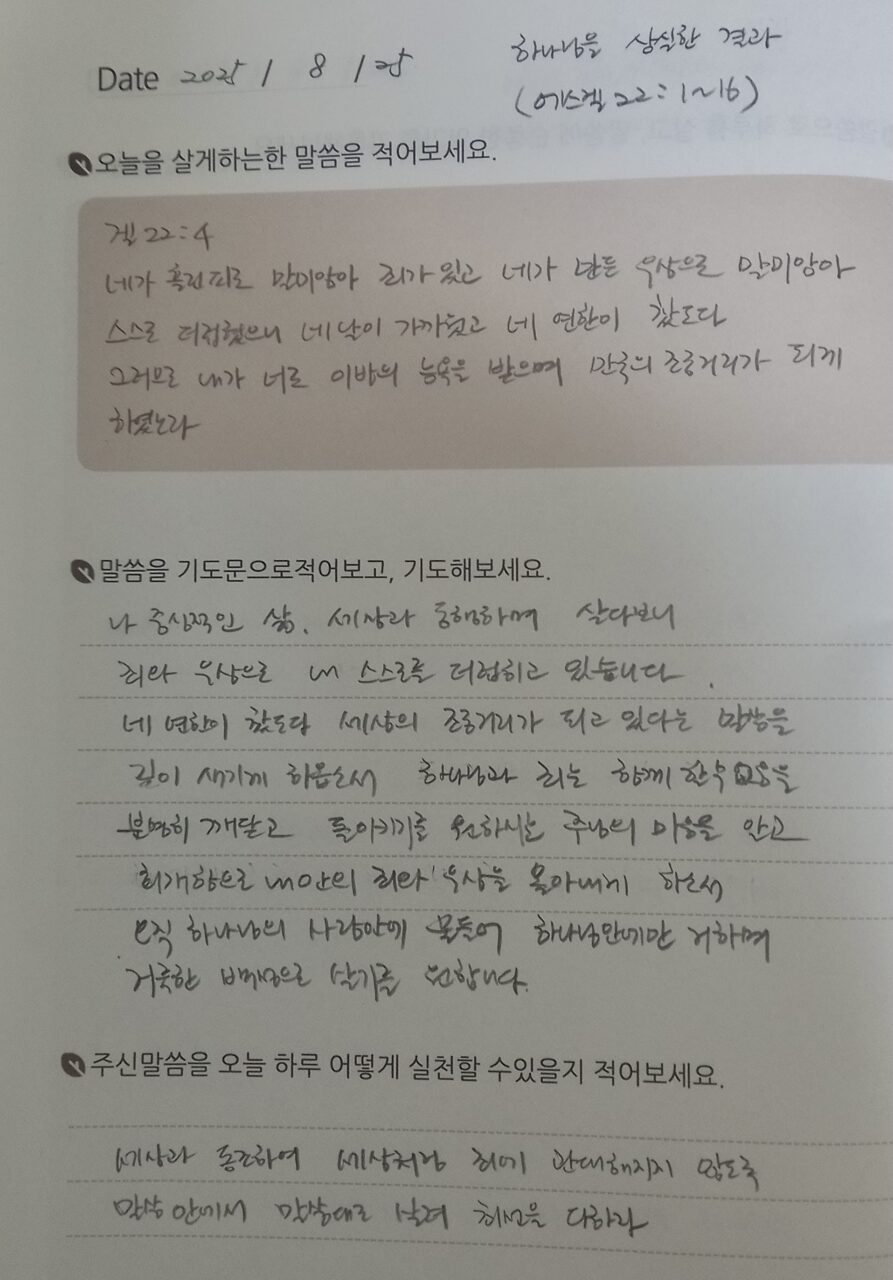 하나님을 상실한 결과
Date 2025 / 8 / 25
(에스겔 22:1~16)
오늘을 살게하는한 말씀을 적어보세요.
겔 22:4
네가 흘린피로 말미암아 죄가 있고 네가 만든 우상으로 말미암아
스스로 더럽혔으니 네 날이 가까웠고 네 연한이 찼도다
그러므로 내가 너로 이방의 능욕을 받으며 만국의 조롱거리가 되게
하였노라
말씀을 기도문으로적어보고, 기도해보세요.
나 중심적인 삶, 세상과 동행하며 살다보니
죄와 우상으로 내 스스로를 더럽히고 있습니다.
네 연한이 찼도다 세상의 조롱거리가 되고 있다는 말씀을
깊이 새기게 하옵소서 하나님과 죄는 함께 할수 없음을
분명히 깨닫고 돌아키기를 원하시는 주님의 마음을 안고
회개함으로 내 안의 죄와 우상을 몰아내게 하소서
오직 하나님의 사랑안에 물들어 하나님안에만 거하며
거룩한 백성으로 살기를 원합니다.
주신말씀을 오늘 하루 어떻게 실천할 수있을지 적어보세요.
세상과 동조하여 세상처럼 죄에 관대해지지 않도록
말씀 안에서 말씀대로 살려 최선을 다하라